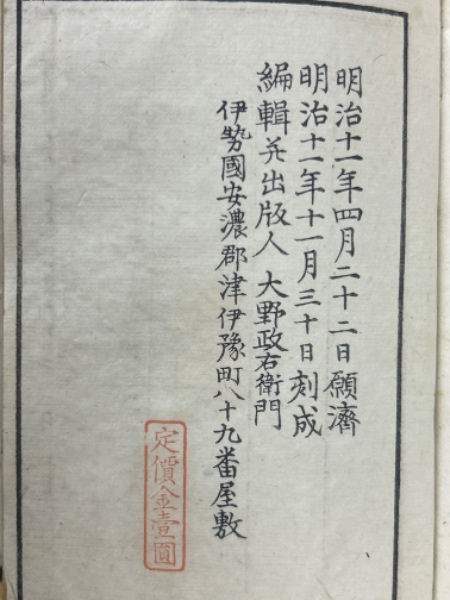 明治十一年四月二十二日願濟
明治十一年十一月三十日刻成
編輯并出版人 大野政右衛門
伊勢國安濃郡津伊豫町八十九番屋敷
定價金壹圓